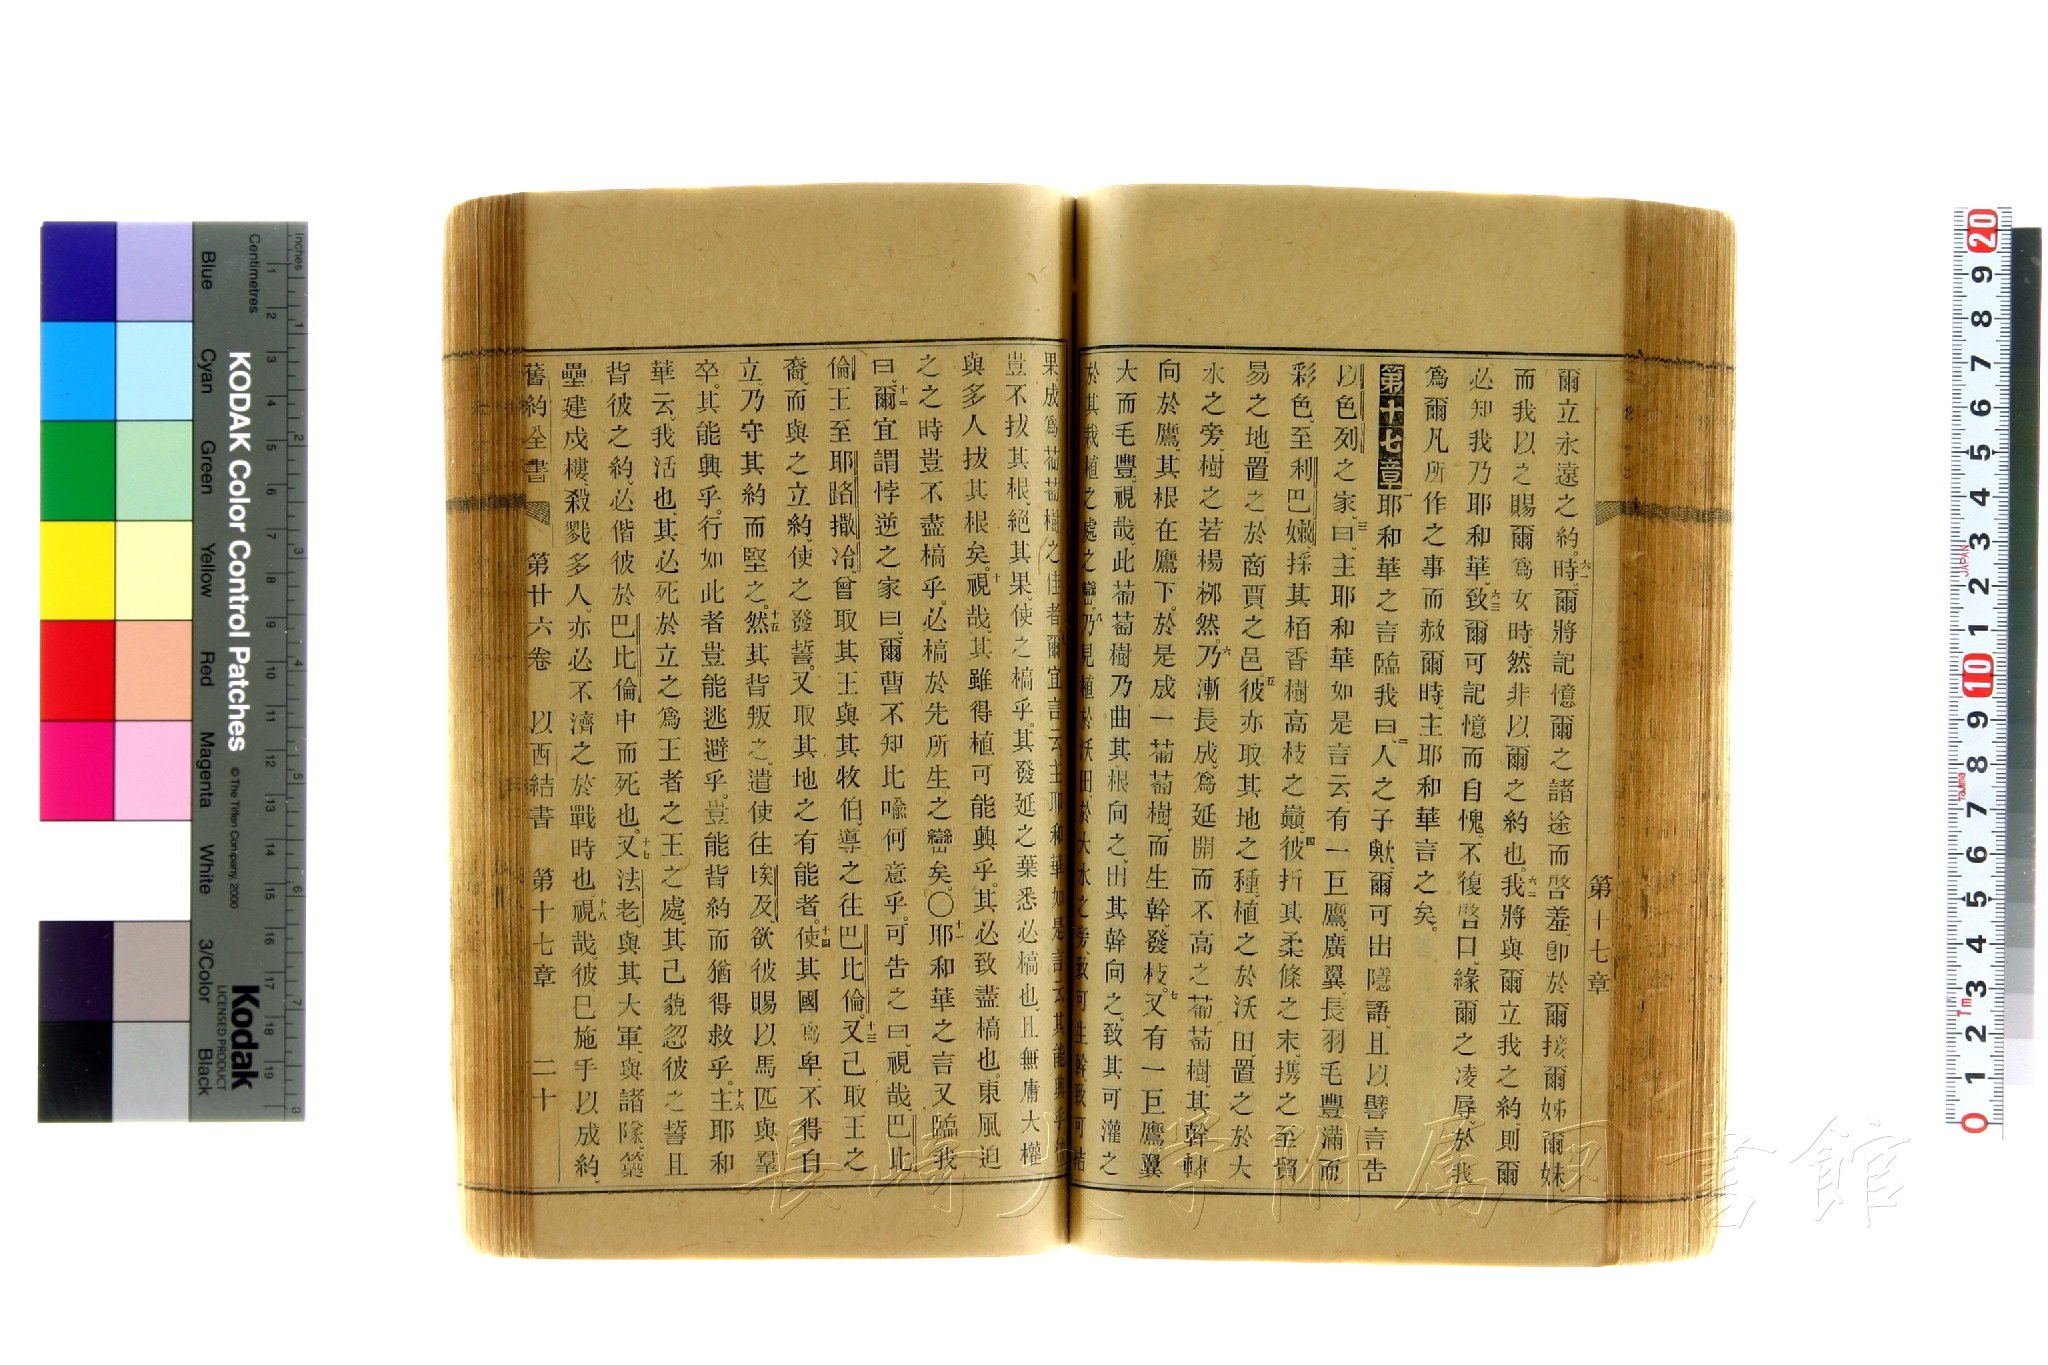 第十七章
爾立永遠之約。六一時、爾將記憶爾之諸途而啓羞、卽於爾接爾姊爾妹、
而我以之賜爾爲女時、然非以爾之約也。六二我將與爾立我之約、則爾
必知我乃耶和華、六三致爾可記憶而自愧、不復啓口、緣爾之凌辱、於我
爲爾凡所作之事而赦爾時、主耶和華言之矣。
第十七章 一耶和華之言臨我曰、二人之子歟、爾可出隱語、且以譬言告
以色列之家、三曰、主耶和華如是言云、有一巨鷹、廣翼、長羽、毛豐滿而
彩色、至利巴嫩、採其栢香樹高枝之巔、四彼折其柔條之末、攜之至貿
易之地、置之於商賈之邑、五彼亦取其地之種、植之於沃田、置之於大
水之旁、樹之若楊栁然。六乃漸長成、爲延開而不高之葡萄樹、其幹轉
向於鷹、其根在鷹下。於是成一葡萄樹、而生幹、發枝。七又有一巨鷹、翼
大而毛豐、視哉、此葡萄樹乃曲其根向之、出其幹向之、致其可灌之
於其栽植之處之巒。八乃見植於沃田、於大水之旁、致可生幹、致可結
果、成爲葡萄樹之佳者、爾宜言云、主耶和華如是言云、其能興乎、
豈不拔其根、絕其果、使之槁乎。其發延之葉悉必槁也、且無庸大權
與多人拔其根矣。十視哉、其雖得植、可能興乎。其必致盡槁也。東風迫
之之時、豈不盡槁乎。必槁於先所生之巒矣。〇十一耶和華之言又臨我
曰、十二爾宜謂悖逆之家曰、爾曹不知比喩何意乎。可告之曰、視哉、巴比
倫王至耶路撒冷、曾取其王與其牧伯、導之往巴比倫。十三又己取王之
裔、而與之立約、使之發誓。又取其地之有能者。十四使其國爲卑、不得自
立、乃守其約而堅之。十五然其背叛之、遣使往埃及、欲彼賜以馬匹與羣
卒。其能興乎。行如此者、豈能逃避乎。豈能背約而猶得救乎。十六主耶和
華云、我活也、其必死於立之爲王者之王之處、其己藐忽彼之誓且
背彼之約、必偕彼於巴比倫中而死也。十七又法老與其大軍、與諸隊、築
壘建成樓、殺戮多人、亦必不濟之於戰時也。十八視哉、彼已施手以成約、
舊約全書 第廿六卷 以西結書 第十七章 二十
長崎大学附属図書館
KODAK Color Control Patches
©The Tiffen Company, 2000
Kodak
LICENSED PRODUCT
Inches
Centimetres
Blue Cyan Green Yellow Red Magenta White 3/Color Black
JAPAN
Tajima
1m